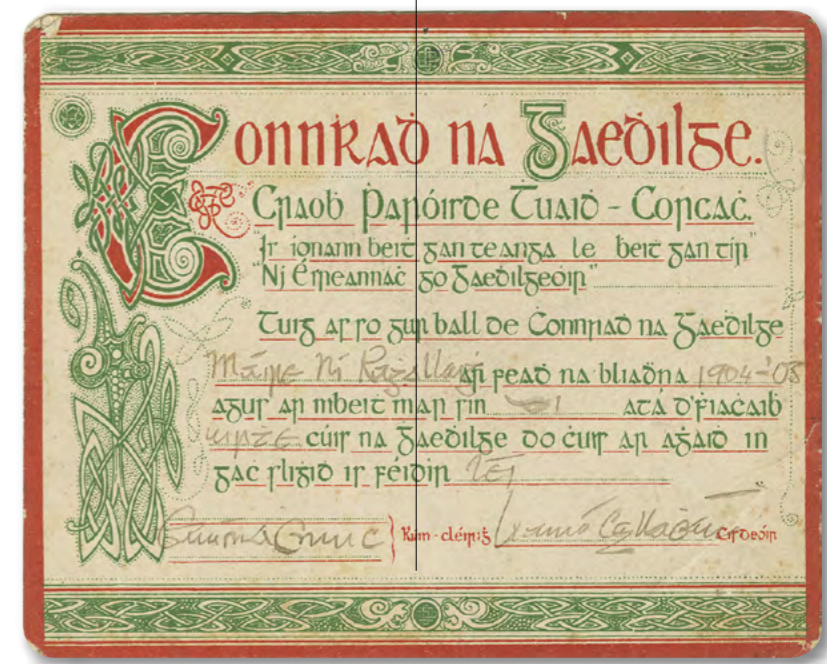 Connraḋ na Gaeḋilge.
Craoḃ Ṗaróirde Tuaiḋ - Corcaċ.
"Ir ionann ḃeiṫ gan teanga le ḃeiṫ gan tír"
"Ní Éireannaċ go Gaeḋilgeóir"
Tuig as so gur ball de Ċonnraḋ na Gaeḋilge
Máire Ní Raġallaiġ ar feaḋ na bliaḋna 1904-'05
agus ar mbeiṫ mar sin sí atá d'fiaċaiḃ
uirṫe cúis na Gaeḋilge do ċur ar aġaiḋ in
gaċ sliġiḋ is féidir léi
Rúin-cléiriġ Cisdeóir